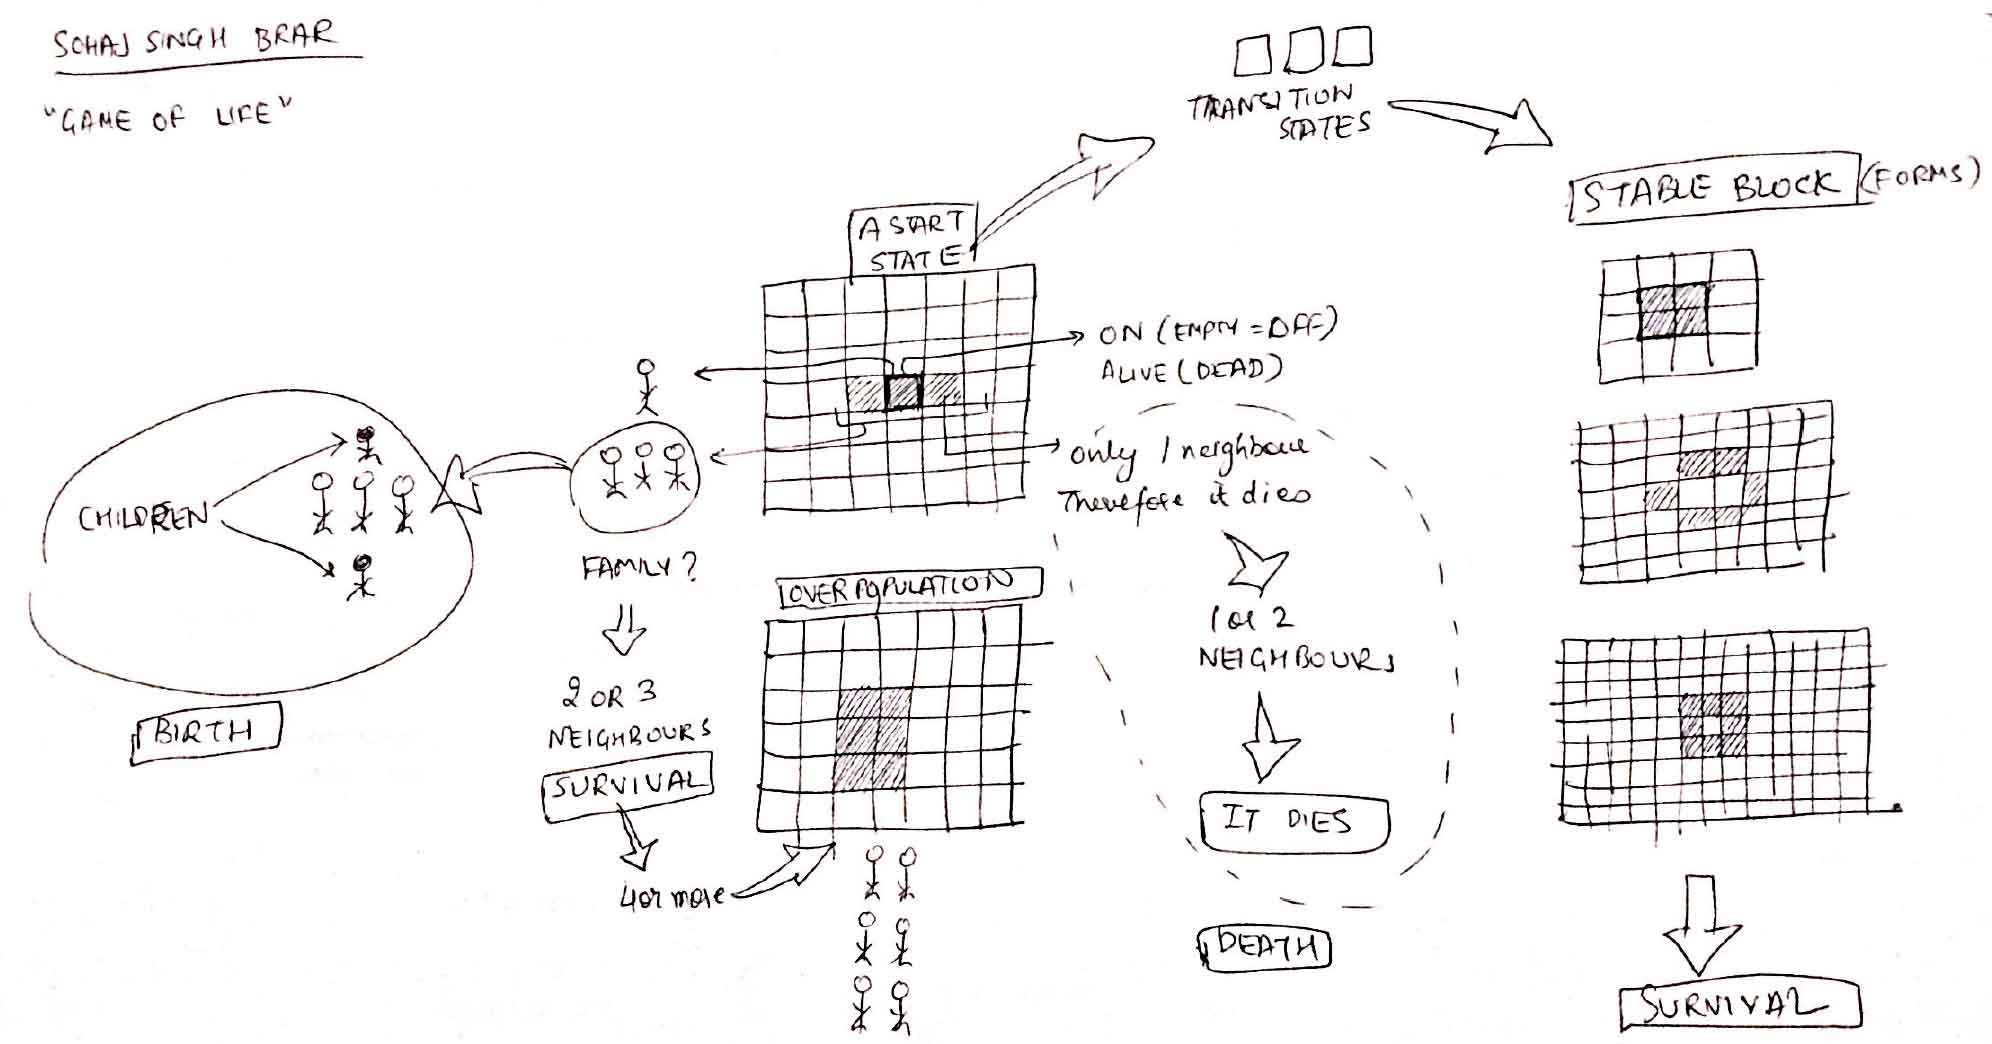 SOHAJ SINGH BRAR
"GAME OF LIFE"
TRANSITION
STATES
STABLE BLOCK (FORMS)
A START
STATE
ON (EMPTY = OFF)
ALIVE (DEAD)
only 1 neighbour
Therefore it dies
CHILDREN
FAMILY?
OVERPOPULATION
1 or 2
NEIGHBOURS
2 OR 3
NEIGHBOURS
BIRTH
SURVIVAL
IT DIES
4 or more
DEATH
SURVIVAL